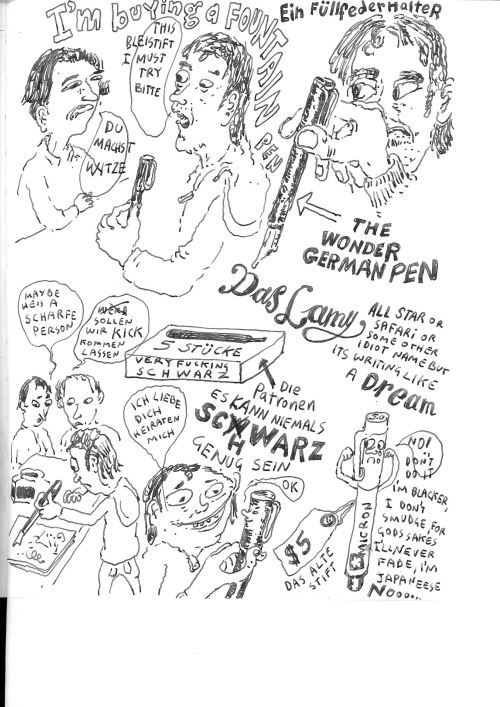 I'm buying a FOUNTAIN PEN
Ein FüllfederHalteR
THIS
BLEISTIFT
I MUST
TRY
BITTE
DU
MACHST
WITZE
THE
WONDER
GERMAN PEN
Das Lamy
ALL STAR OR
SAFARI OR
SOME OTHER
IDIOT NAME BUT
ITS WRITING LIKE
A DREAM
MAYBE
HE IS A
SCHARFE
PERSON
SOLLEN
WIR KICK
KOMMEN
LASSEN
5 STÜCKE
VERY FUCKING
SCHWARZ
Die
Patronen
ES KANN NIEMALS
SCHWARZ
GENUG SEIN
ICH LIEBE
DICH
HEIRATEN
MICH
OK
$5
DAS ALTE
STIFT
MICRON
NO!
DON'T
DO IT
I'M BLACKER,
I DON'T
SMUDGE FOR
GODS SAKES
I'LL NEVER
FADE, I'M
JAPANEESE
NOOO...